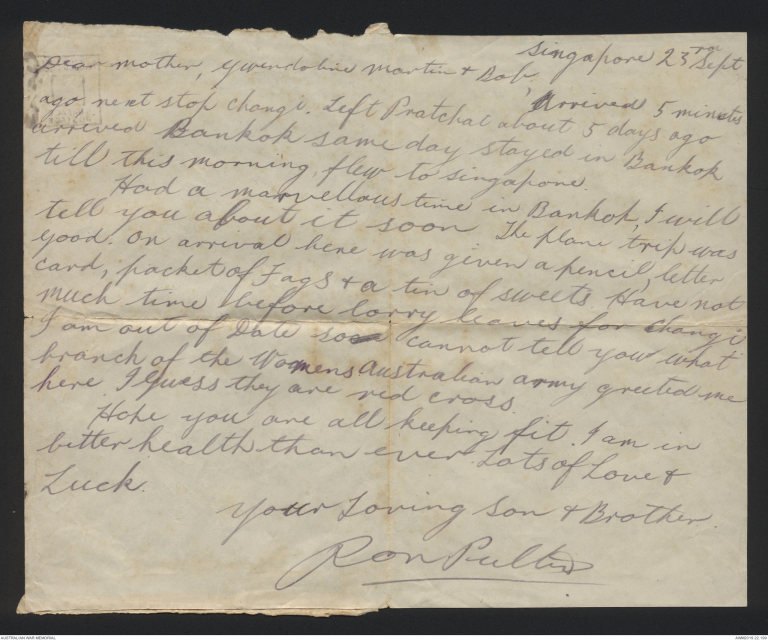 Singapore 23rd Sept
Dear Mother, Gwendoline Martin & Bob,
Arrived 5 minutes
ago, next stop Changi. Left Pratchai about 5 days ago
arrived Bankok same day stayed in Bankok
till this morning, flew to Singapore.
Had a marvellous time in Bankok, I will
tell you about it soon The plane trip was
good. On arrival here was given a pencil, letter
card, packet of Fags & a tin of sweets. Have not
much time before lorry leaves for Changi
I am out of Date so cannot tell you what
branch of the Womens Australian army greeted me
here I Guess they are red cross.
Hope you are all keeping fit. I am in
better health than ever Lots of Love &
Luck.
Your Loving Son & Brother.
Ron
AUSTRALIAN WAR MEMORIAL